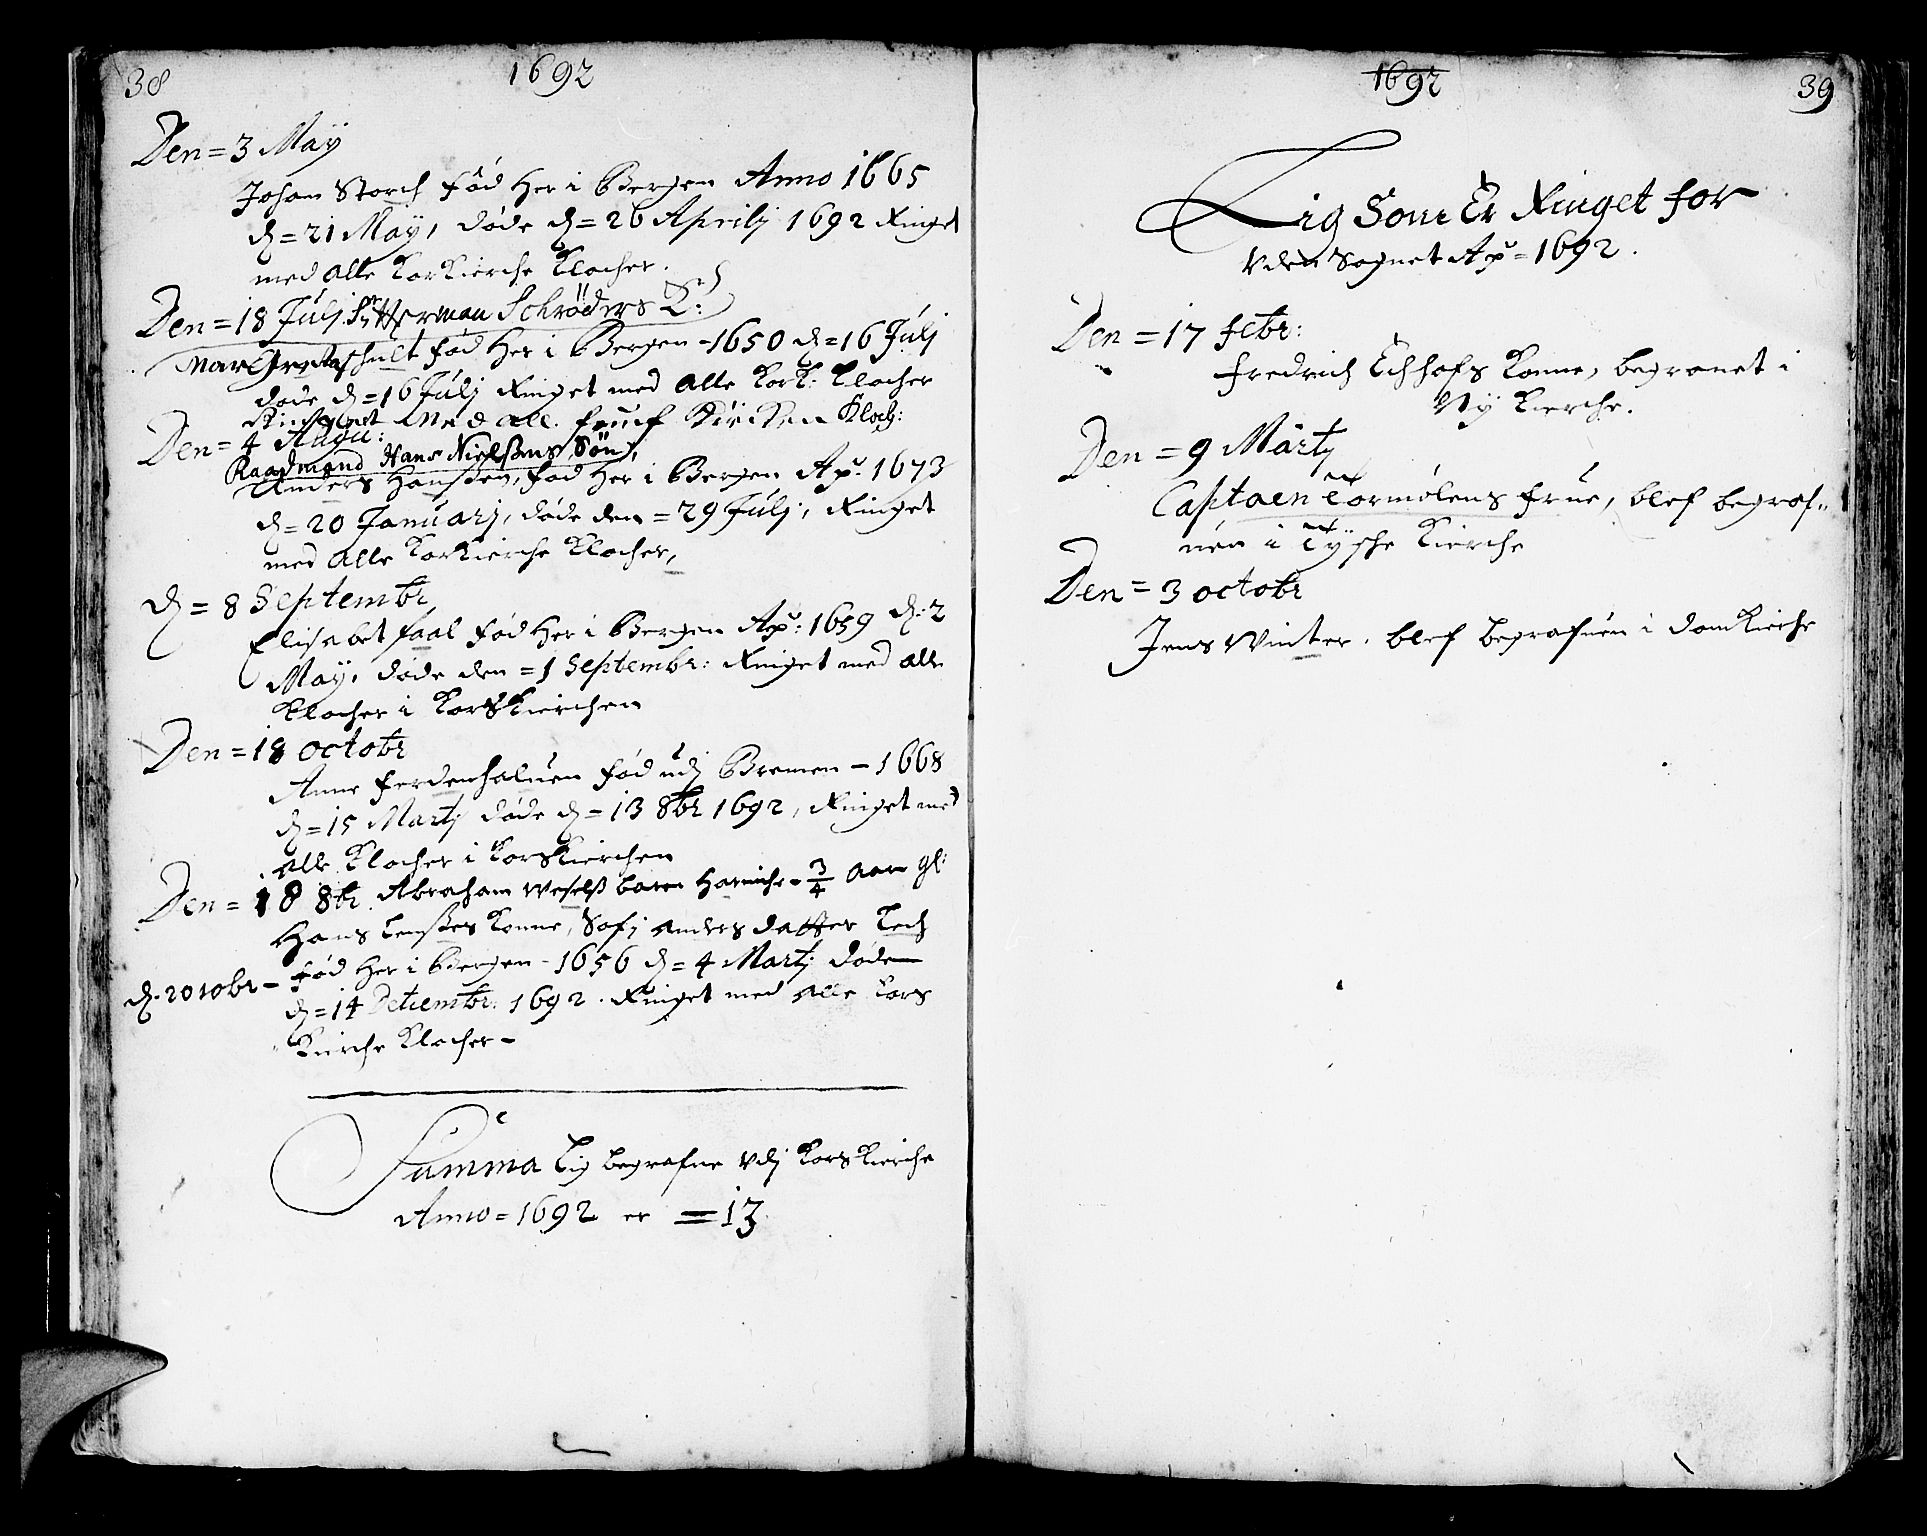 38
1692
Den = 3 Maÿ
Johan Storch fød Her i Bergen Anno 1665
d = 21 Maÿ, døde d = 26 Aprilj 1692 Ringet
med alle KorKierche Klocher.
Den = 18 Julj Sr Herman Schrøders
Margreta Schult fød Her i Bergen - 1650 d = 16 Julj
døde d = 16 Julj Ringet med alle KorK: Klocher
Med all Kircken Kloch:
Den = 4 Augu:
Raadmand Hans Nielsens Søn,
Anders Hansen, fød Her i Bergen Ao. 1673
d = 20 Januarj, døde den = 29 Julj, Ringet
med alle KorKierche Klocher,
d = 8 Septembr,
Elisabet faal fød Her i Bergen Ao: 1659 d. 2
Maÿ, døde den = 1 Septembr: Ringet med alle
Klocher i KorsKierchen
Den = 18 octobr
Anne ferdenhaluen fød udj Bremen - 1668
d = 15 Martj døde d = 13 8br 1692, Ringet med
alle Klocher i KorsKierchen
Den = 18 8br. Abraham Wesels baren Harniche - 3/4 aar gl:
Hans Lenses Konne, Sofi Anders datter Lech
fød Her i Bergen - 1656 d = 4 Martj døde
d. 20 10br - d = 14 Detiembr. 1692. Ringet med alle Kors
Kirche Klocher -
Summa Lig begrafne Vdj KorsKierche
Anno = 1692 er = 13
1692
39
Lig Som Er Ringet for
Vden Sognet Ao = 1692.
Den = 17 febr:
fredrich Echhofs Konne, begrauet i
Nÿ Kierche.
Den = 9 Martj
Captaen Tormølens frue, blef begraf=
uen i Tÿsche Kierche
Den = 3 octobr
Jens Winter. blef begrafuen i domKirche